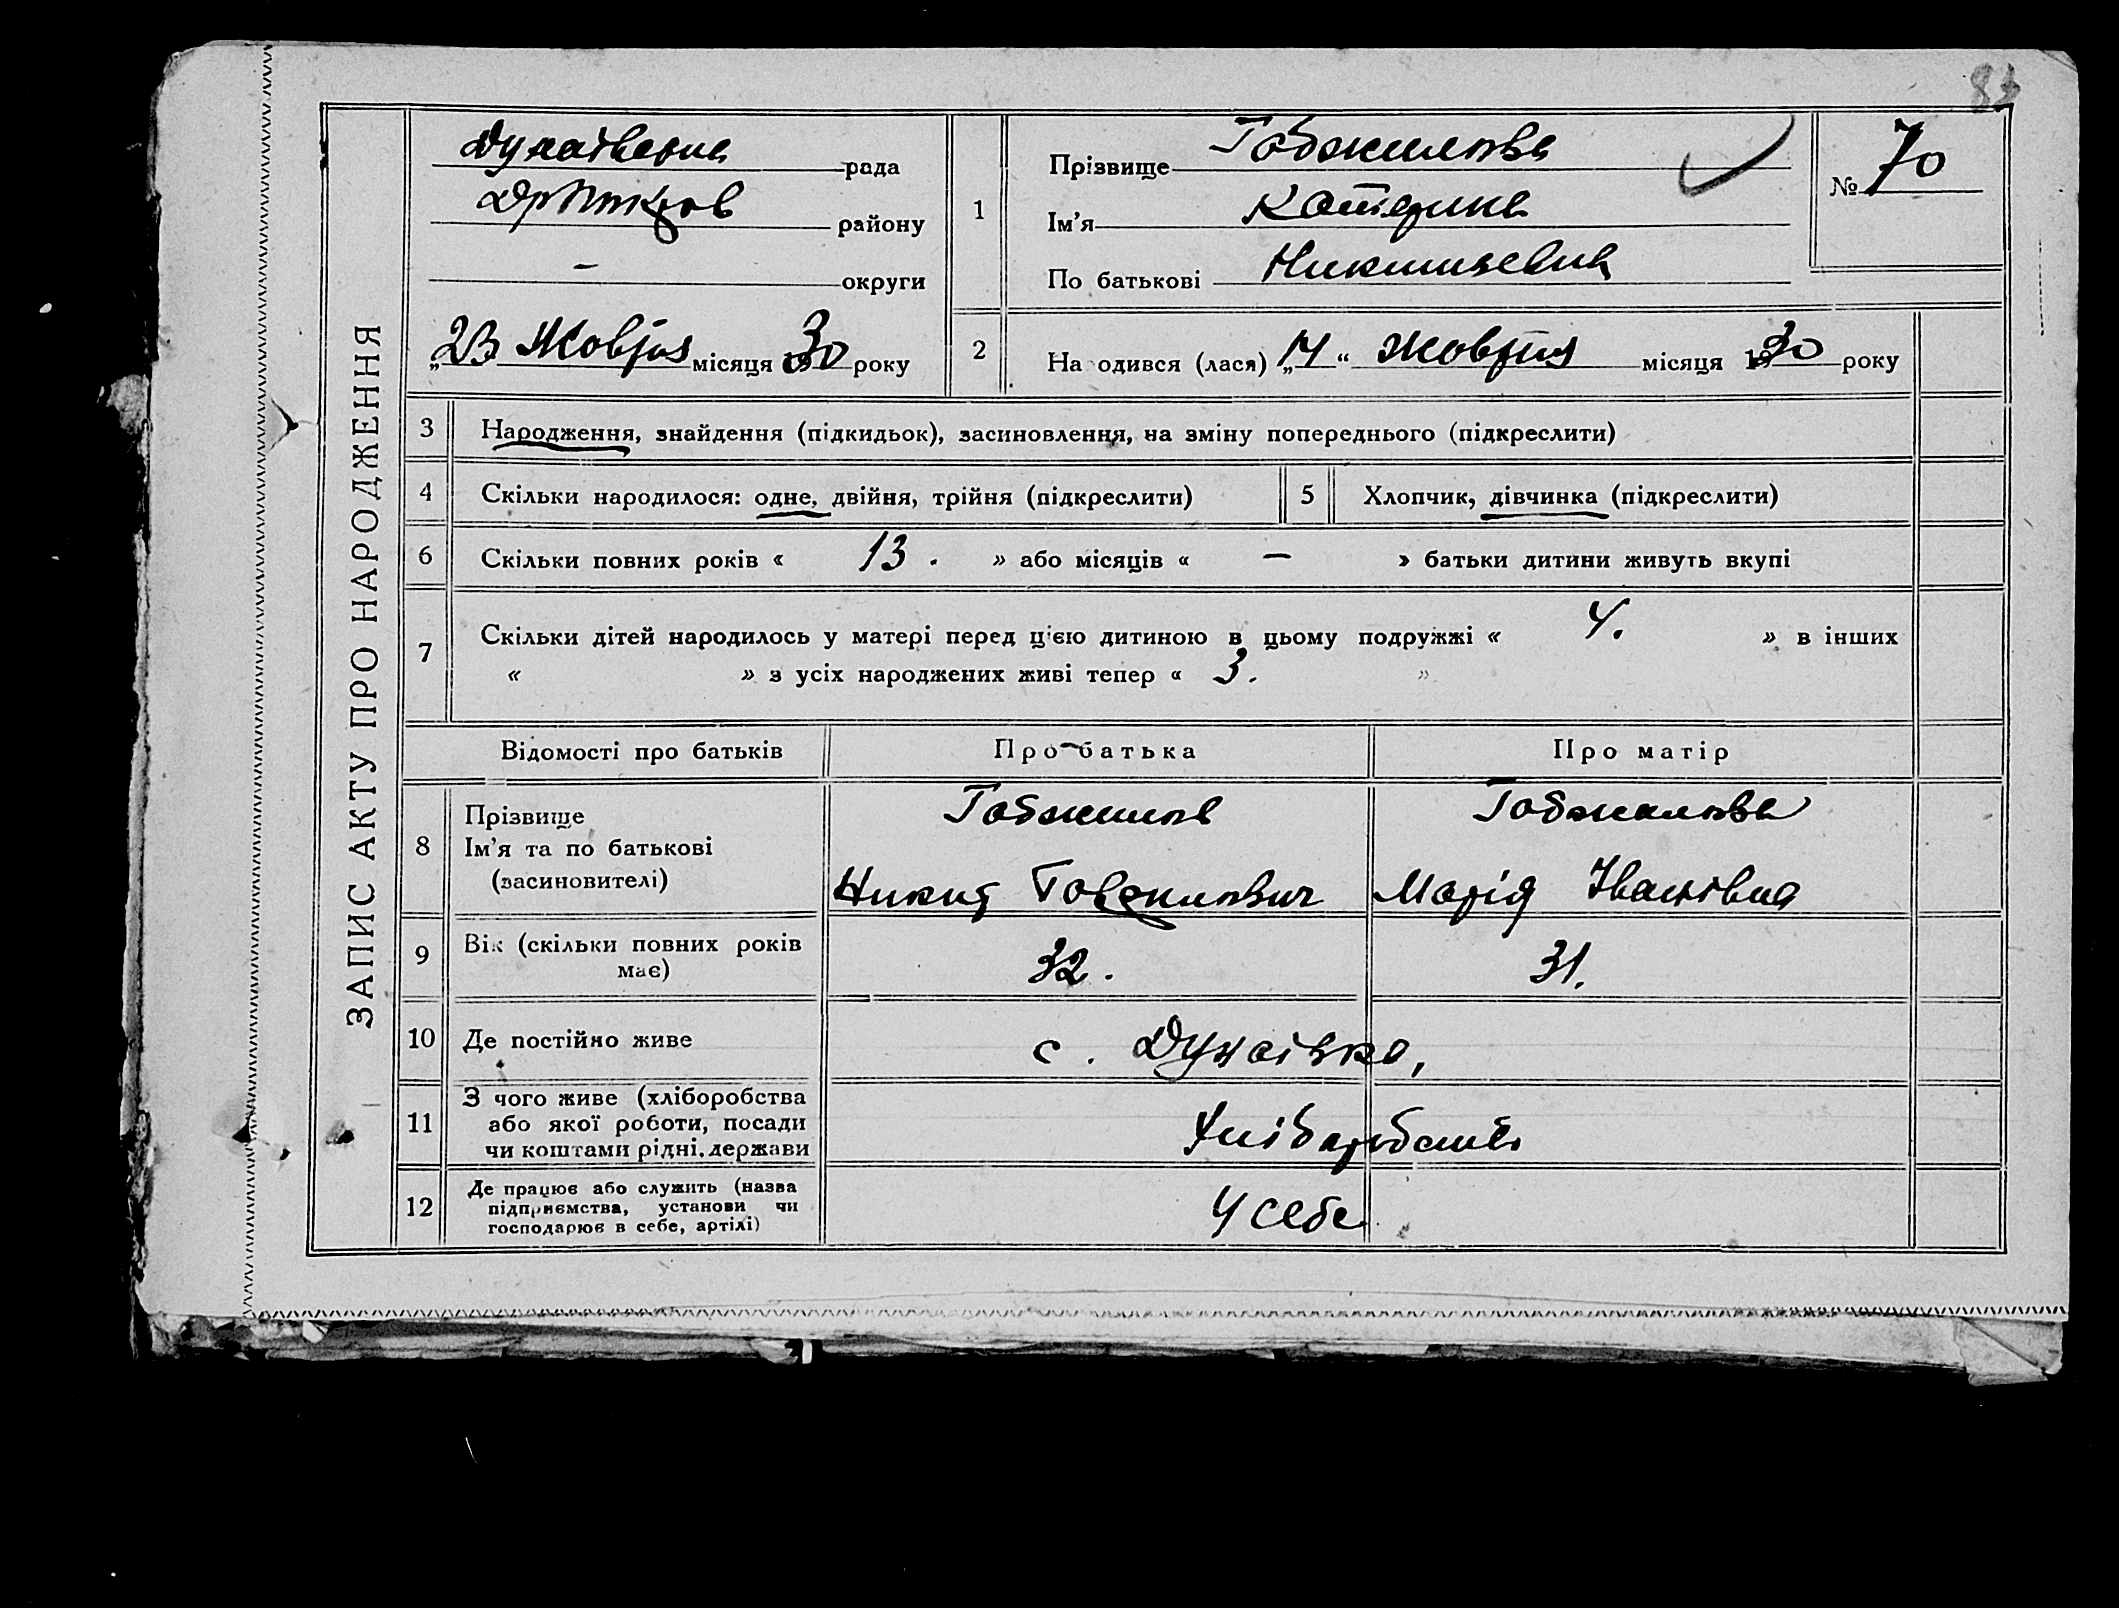 83
ЗАПИС АКТУ ПРО НАРОДЖЕННЯ
Дунаївська рада
району
— округи
„23 Жовтня місяця 1930 року
1
Прізвище
Ім'я Катерина
По батькові
№ 70
2
На одився (лася) „14“ Жовтня місяця 1930 року
3 Народження, знайдення (підкидьок), засиновлення, на зміну попереднього (підкреслити)
4 Скільки народилося: одне, двійня, трійня (підкреслити)
5 Хлопчик, дівчинка (підкреслити)
6 Скільки повних років « 13. » або місяців « — » батьки дитини живуть вкупі
7 Скільки дітей народилось у матері перед цією дитиною в цьому подружжі « 4. » в інших
« » з усіх народжених живі тепер « 3. »
Відомості про батьків Про батька Про матір
8 Прізвище
Ім'я та по батькові
(засиновителі)
Никит
Марія Іванівна
9 Вік (скільки повних років
має)
32. 31.
10 Де постійно живе с. Дунаївка,
11 З чого живе (хліборобства
або якої роботи, посади
чи коштами рідні, держави
Хліборобство
12 Де працює або служить (назва
підприємства, установи чи
господарює в себе, артілі)
У себе